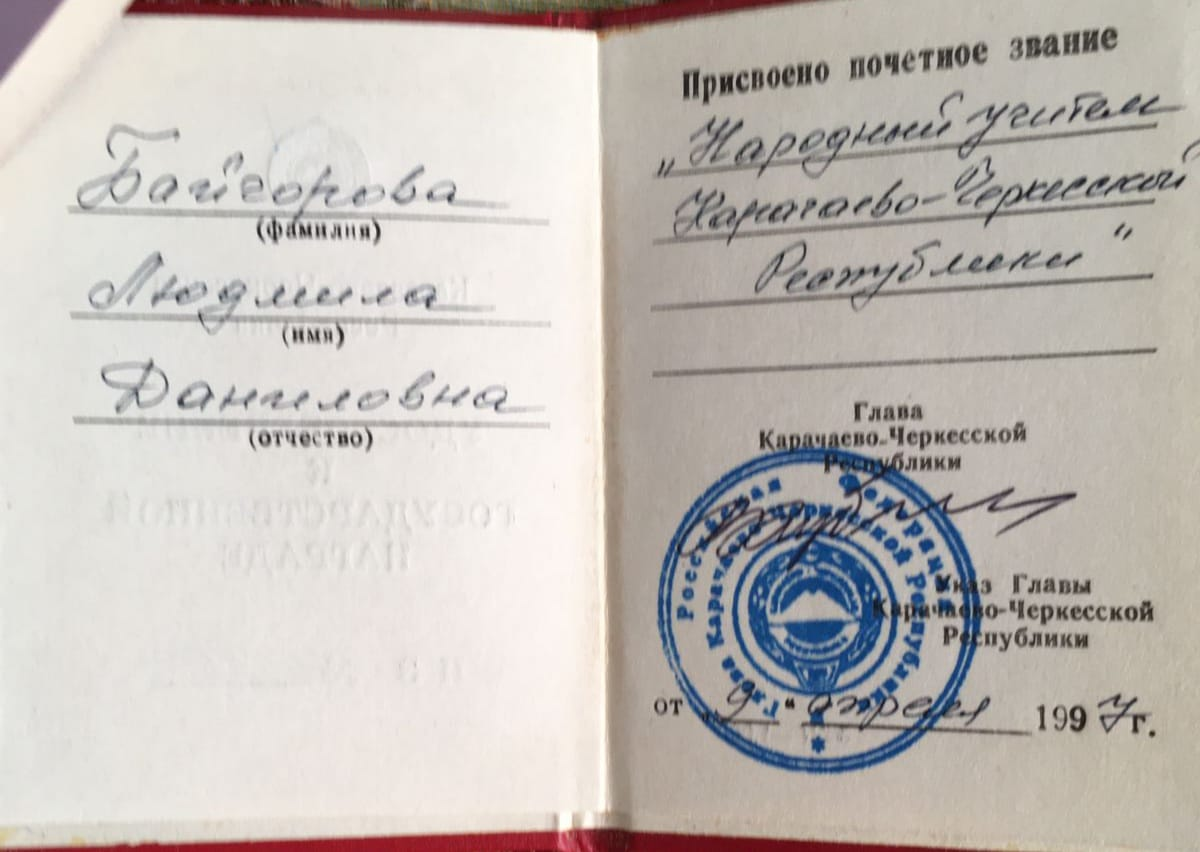 Байчорова
(фамилия)
Людмила
(имя)
Даниловна
(отчество)
Присвоено почетное звание
„Народный учитель
Карачаево-Черкесской
Республики"
Глава
Карачаево-Черкесской
Республики
Российская Федерация
Глава Карачаево-Черкесской Республики
Указ Главы
Карачаево-Черкесской
Республики
от „9" апреля 1997 г.